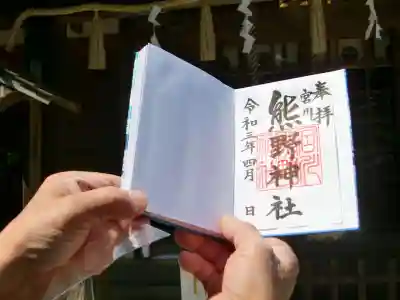 奉拝
宮川
熊野神社
令和三年四月 日